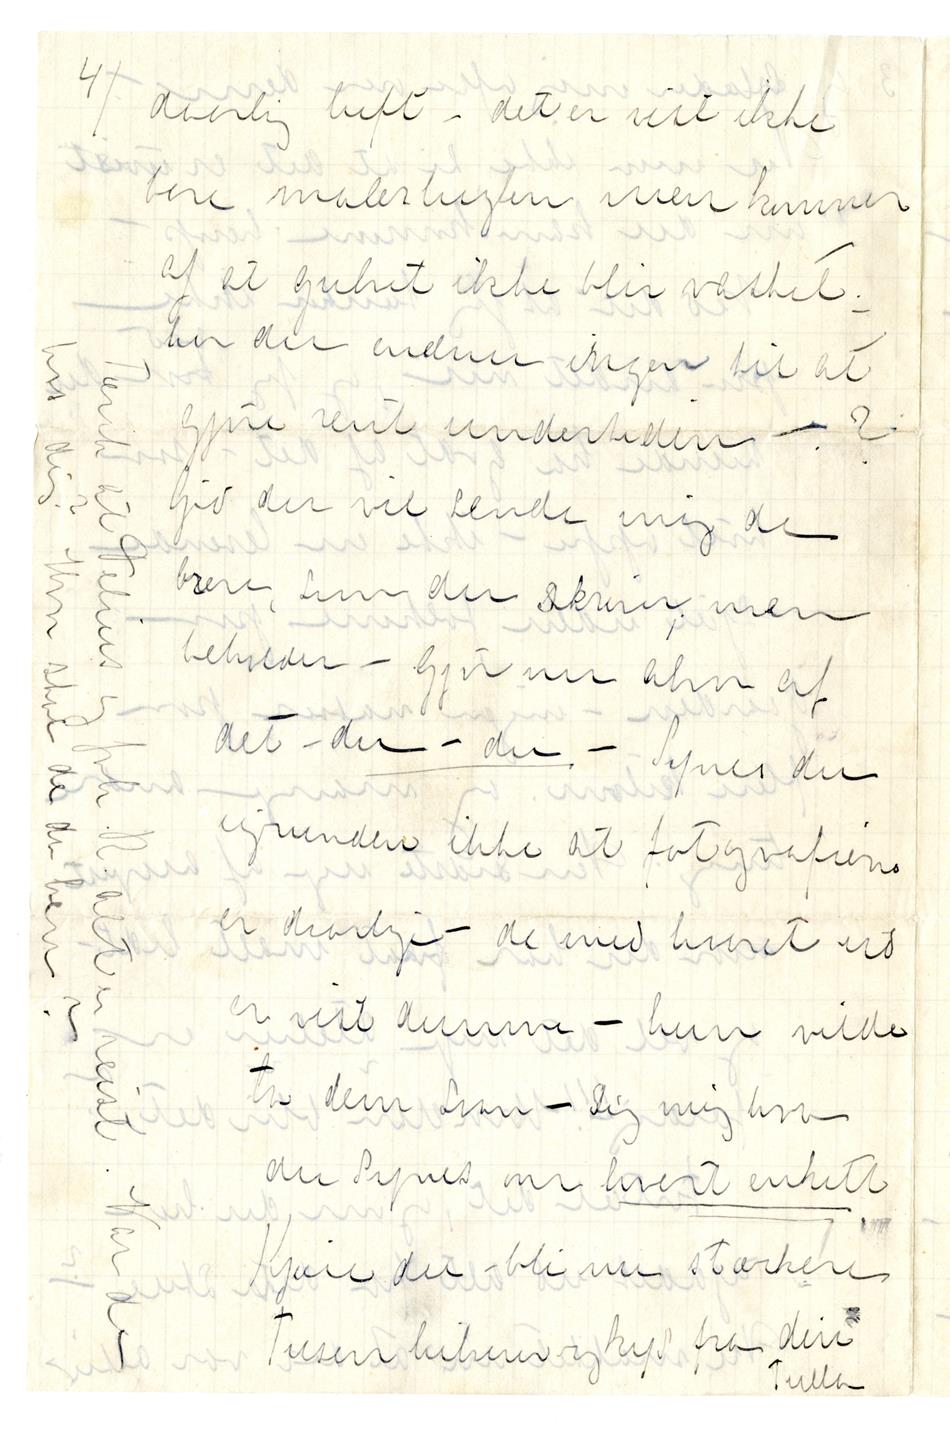 4/
daarlig luft – det er vist ikke
bare malerlugten men kommer
af at gulvet ikke blir vasket –
har du endnu ingen til at
gjøre rent undertiden – ?
gid du vil sende mig de
breve, som du skriver, men
beholder – Gjør nu alvor af
det – du – du – Synes du
igrunden ikke at fotografierne
er daarlige – de med haaret ud
er vist dumme – hun vilde
ta dem saan – Sig mig hva
du Synes om hvert enkelt
Kjære du – bli nu stærkere
Tusen hilsener og kys fra din
Tulla
Tænk at Delius og fru R. alt er reist. Var de
hos dig? Hvor skal de du hen?